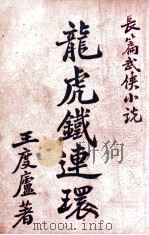 長篇武侠小说
龍虎鐵連環
王度廬著